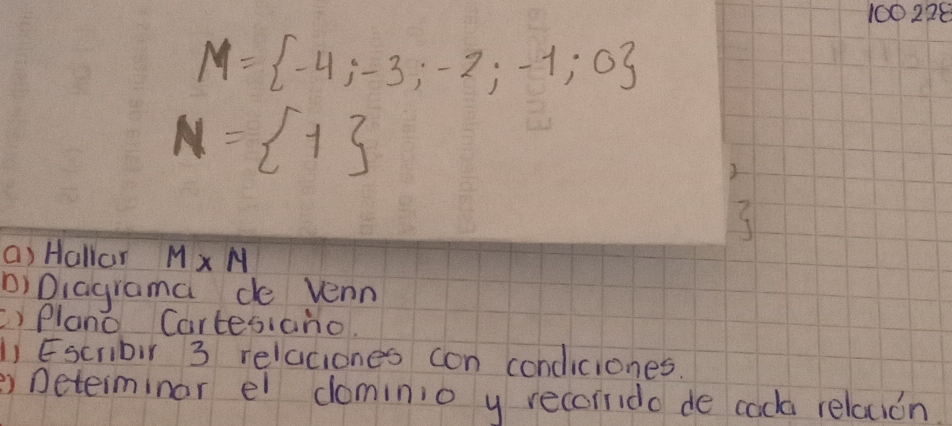 100228
M = {-4; -3; -2; -1; 0}
N = {1}
}
a) Hallar M x N
b) Diagrama de Venn
c) Plano Cartesiano.
d) Escribir 3 relaciones con condiciones.
e) Determinar el dominio y recorrido de cada relación